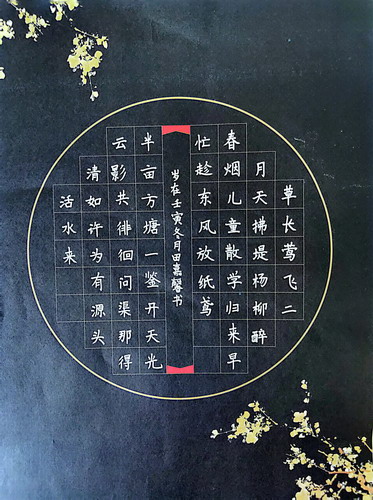 草长莺飞二
月天拂堤杨柳醉
春烟儿童散学归来早
忙趁东风放纸鸢
岁在壬寅冬月田嘉馨书
半亩方塘一鉴开天光
云影共徘徊问渠那得
清如许为有源头
活水来